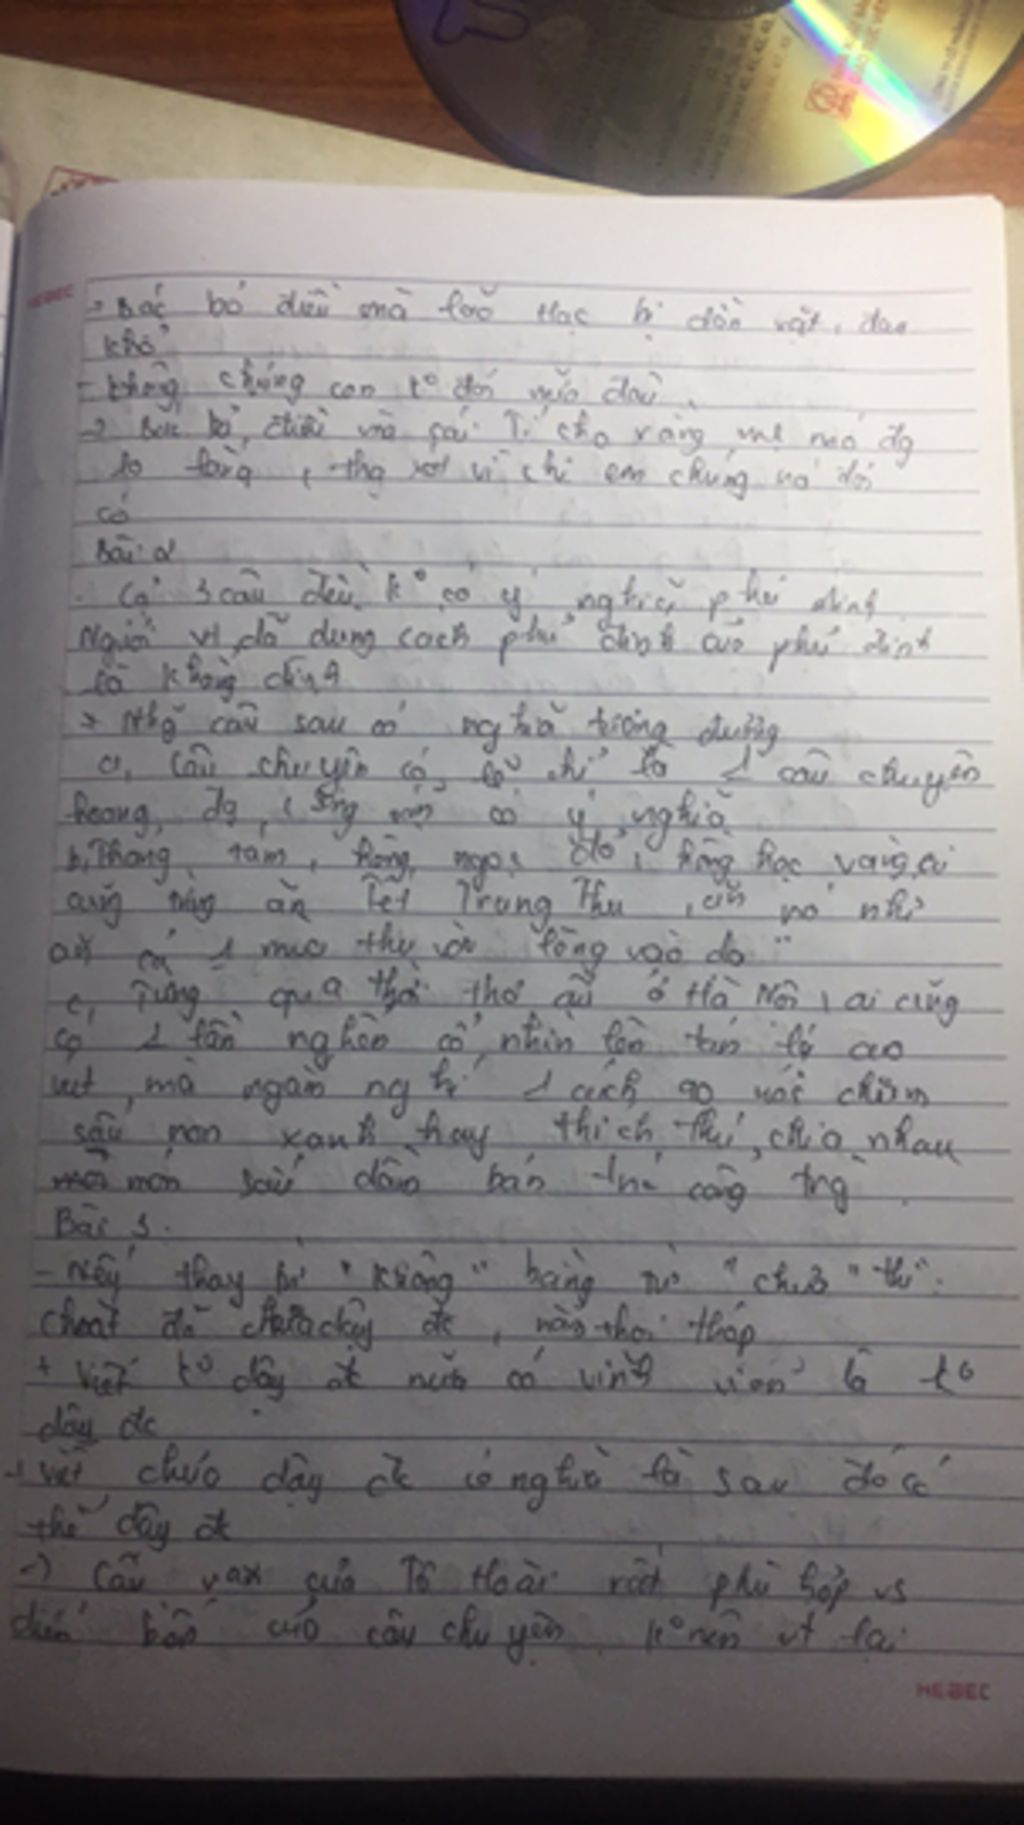 HEBEC
-> Bác bỏ điều mà lão Hạc bị dằn vặt, đau
khổ
- không, chúng con k° đói nữa đâu.
-> Bác bỏ điều mà cái Tí cho rằng mẹ nó đg
lo lắng, thg xót vì chị em chúng nó đói
cỏ
Bài 2
- Cả 3 câu đều k° có ý nghĩa phủ định
Người vt đã dùng cách phủ định của phủ định
là khẳng định
+ Nhg câu sau có nghĩa tương đương
a, Câu chuyện có lẽ chỉ là 1 câu chuyện
hoang đg, vẫn có ý nghĩa
b, Tháng tám, hồng ngọc đỏ, hồng hạc vàng, ai
cũng từng ăn Tết Trung Thu, ăn nó như
ăn cả 1 mùa thu vào lòng vào dạ"
c, Từng qua thời thơ ấu ở Hà Nội, ai cũng
có 1 lần nghển cổ nhìn lên tán lá cao
vút mà ngắm nghí 1 cách ao ước chùm
sấu non xanh hay thích thú chia nhau
món sấu dầm bán trc cổng trg
Bài 3.
- Nếu thay từ "không" bằng từ "chưa" thì:
Choắt đã chưa dậy đc, nằm thoi thóp
+ Viết k° dậy đc nữa có vĩnh viễn là k°
dậy đc
+ Viết chưa dậy đc có nghĩa là sau đó có
thể dậy đc
-> Câu văn của Tô Hoài rất phù hợp vs
diễn biến của câu chuyện k° nên vt lại
HEBEC